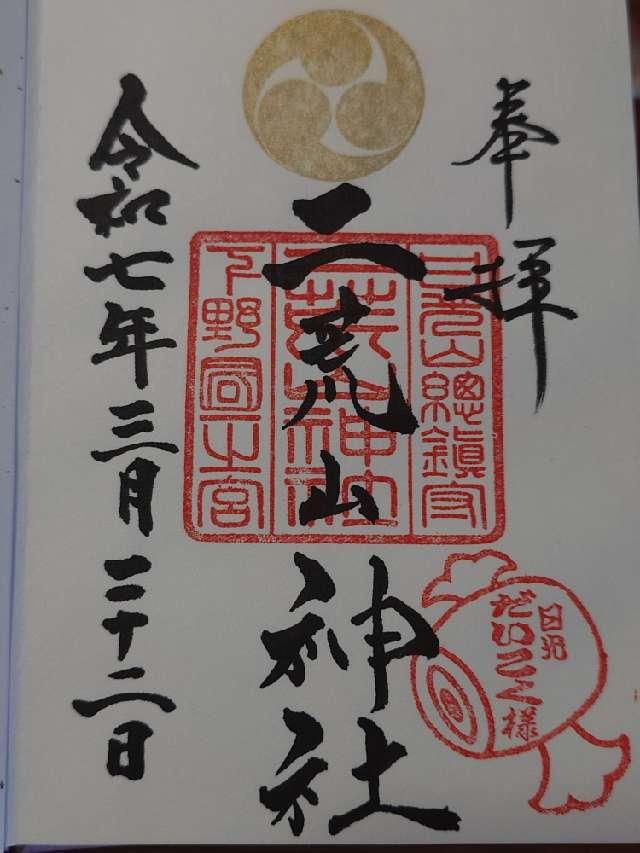 奉拝
日光山總鎮守
二荒山神社
下野國一之宮
二荒山神社
日光
だいこく様
令和七年三月二十二日